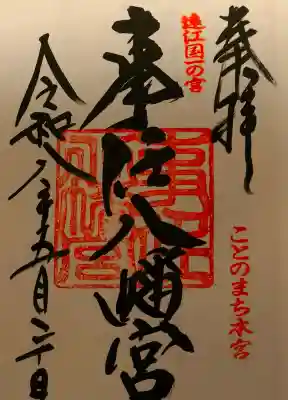 奉拝
遠江国一の宮
ことのまち本宮
事任八幡宮
令和八年五月二十日